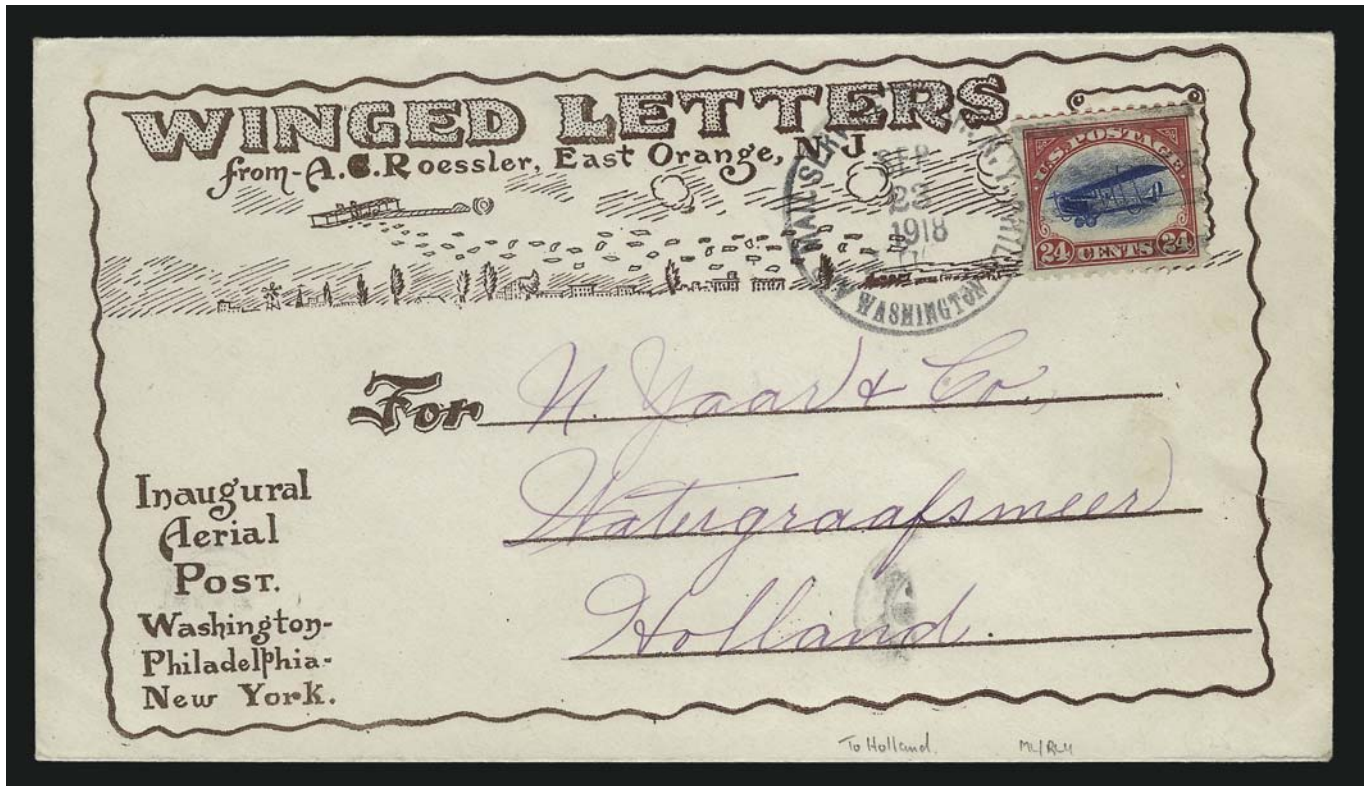 WINGED LETTERS
from-A.C.Roessler, East Orange, N.J
SEP
23
1918
WASHINGTON
U.S. POSTAGE
24 CENTS 24
For N. Yaar & Co.,
Watergraafsmeer
Holland.
Inaugural
Aerial
POST.
Washington-
Philadelphia-
New York.
To Holland.